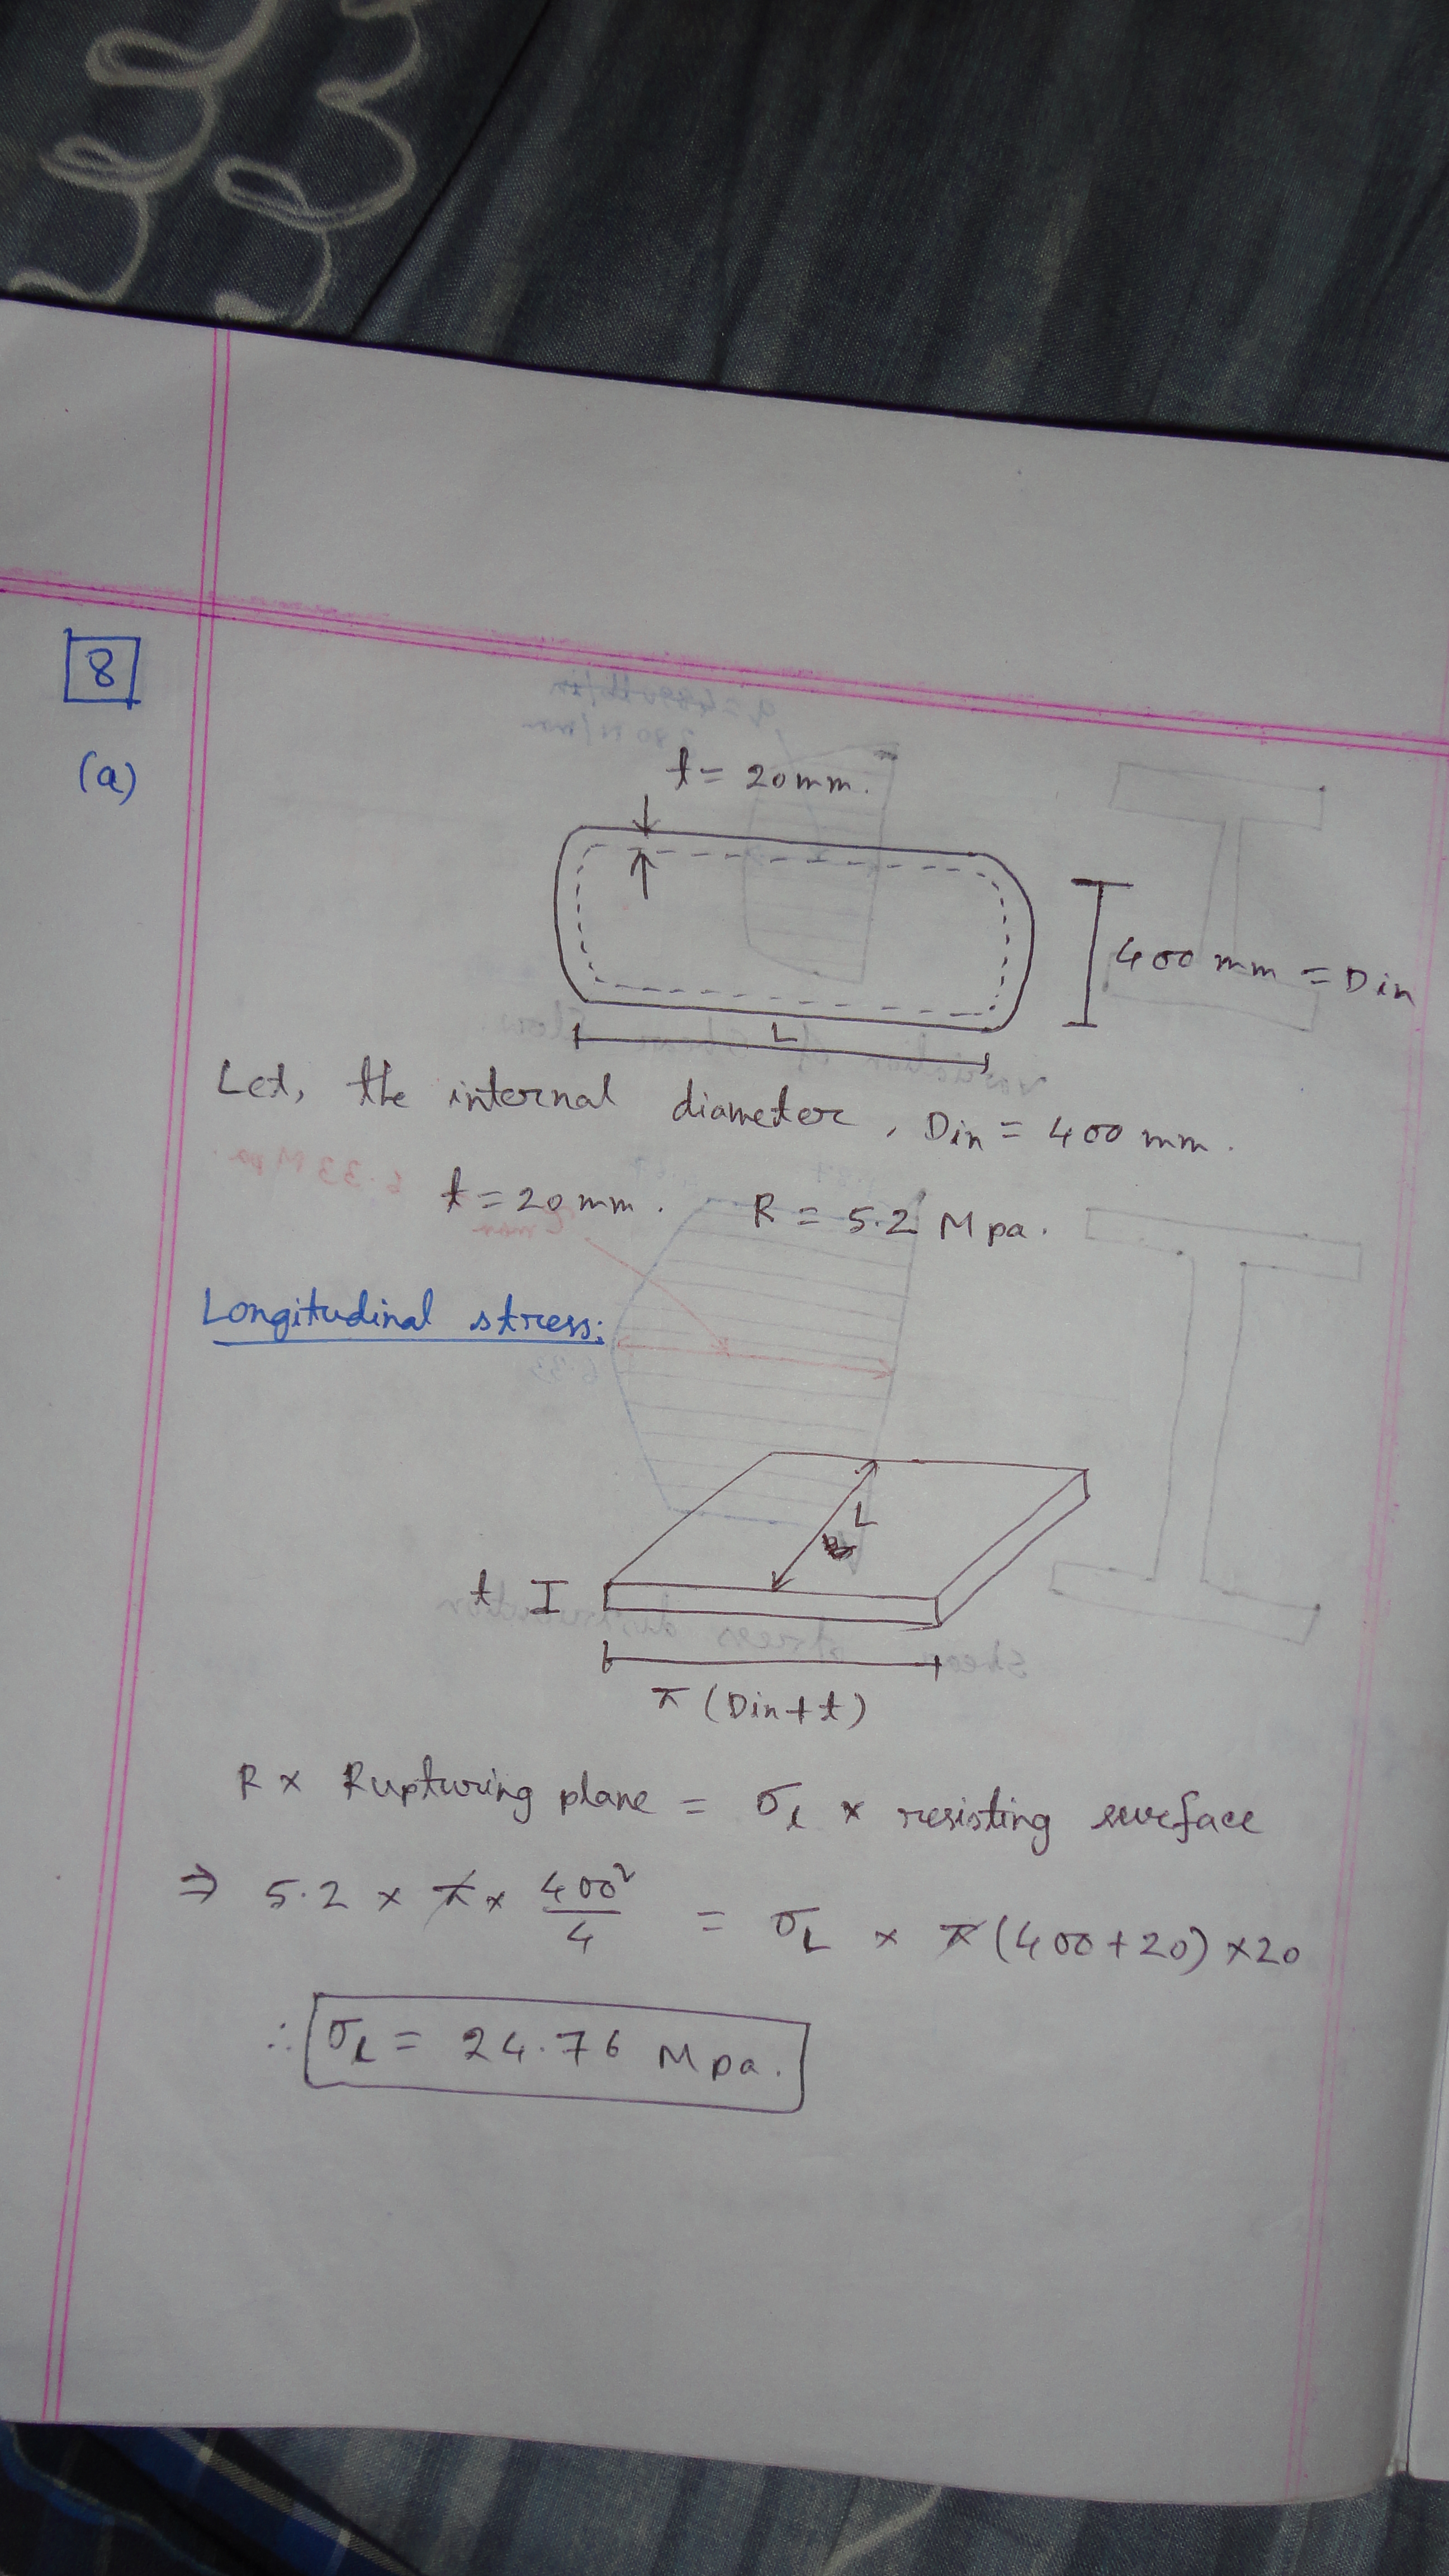 8
(a)
t = 20 mm.
400 mm = Din
L
Let, the internal diameter, Din = 400 mm.
t = 20 mm. R = 5.2 Mpa.
Longitudinal stress:
L
t
π (Din + t)
R × Rupturing plane = σ_l × resisting surface
⇒ 5.2 × π × 400²/4 = σ_L × π (400 + 20) × 20
∴ σ_l = 24.76 Mpa.